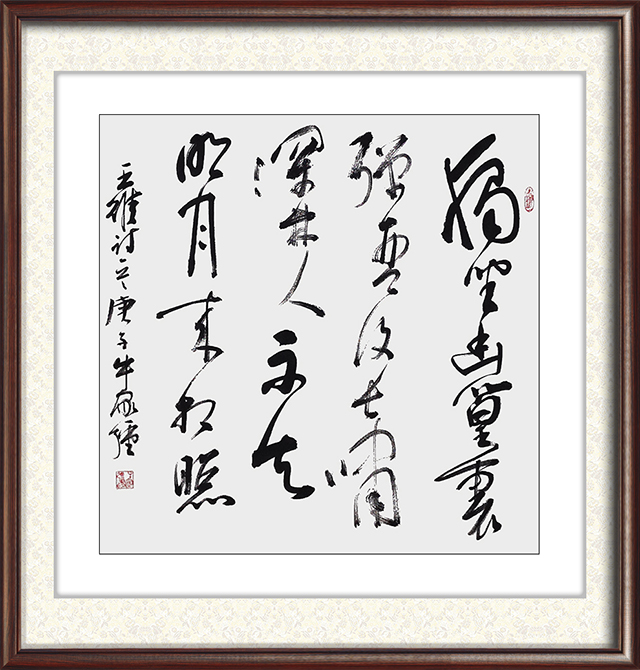 獨坐幽篁裏
彈琴復長嘯
深林人不知
明月來相照
王維詩一首 庚子牛